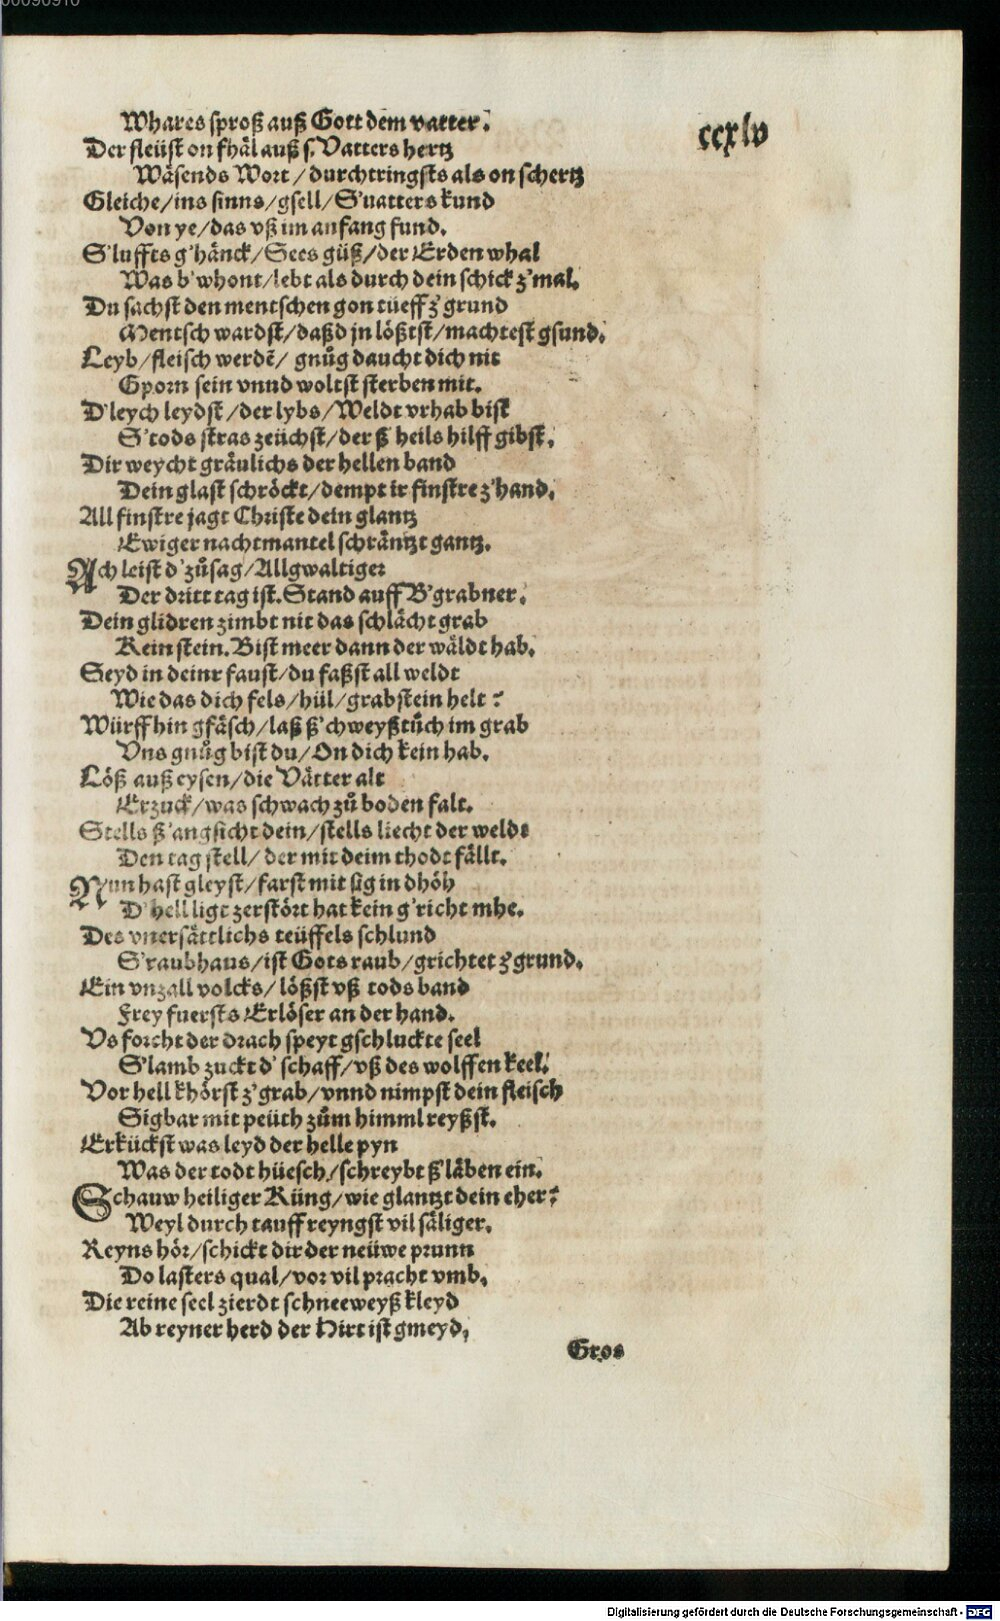 ccxlv
Whares sproß auß Gott dem vatter.
Der fleüst on fhäl auß s. Vatters hertz
Wäsends Wort / durchtringsts als on schertz
Gleiche/ins sinns/gsell/S'uatters kund
Von ye/das vß im anfang fund.
S'luffts g'hänck/Sees güß/der Erden whal
Was b'whont/lebt als durch dein schick z'mal.
Du sachst den mentschen gon tüeff z'grund
Mentsch wardst/daßd jn lößtst/machtest gsund.
Leyb/fleisch werdē/ gnůg daucht dich nit
Gporn sein vnnd woltst sterben mit.
D'leych leydst/der lybs/Weldt vrhab bist
S'tods stras zeüchst/der ß' heils hilff gibst.
Dir weycht gräulichs der hellen band
Dein glast schröckt/dempt ir finstre z'hand.
All finstre jagt Christe dein glantz
Ewiger nachtmantel schräntzt gantz.
Ach leist d'zůsag/Allgwaltiger
Der dritt tag ist. Stand auff B'grabner.
Dein glidren zimbt nit das schlächt grab
Kein stein. Bist meer dann der wäldt hab.
Seyd in deinr faust/du faßst all weldt
Wie das dich fels/hül/grabstein helt?
Würff hin gfäsch/laß ß'chweyßtůch im grab
Vns gnůg bist du/On dich kein hab.
Löß auß eysen/die Vätter alt
Erzuck/was schwach zů boden falt.
Stells ß'angsicht dein/stells liecht der weldt
Den tag stell/ der mit deim thodt fällt.
Nun hast gleyst/farst mit sig in dhöh
D'hell ligt zerstört hat kein g'richt mhe.
Des vnersättlichs teüffels schlund
S'raubhaus/ist Gots raub/grichtet z'grund.
Ein vnzall volcks/lößst vß tods band
Frey fuersts Erlöser an der hand.
Vs forcht der drach speyt gschluckte seel
S'lamb zuckt d' schaff/vß des wolffen keel.
Vor hell khörst z'grab/vnnd nimpst dein fleisch
Sigbar mit peüth zům himml reyßst.
Erkückst was leyd der helle pyn
Was der todt hüesch/schreybt ß'läben ein.
Schauw heiliger Küng/wie glantzt dein eher?
Weyl durch tauff reyngst vil säliger.
Reyns hör/schickt dir der neüwe prunn
Do lasters qual/vor vil pracht vmb.
Die reine seel zierdt schneeweyß kleyd
Ab reyner herd der Hirt ist gmeyd.
Gros
Digitalisierung gefördert durch die Deutsche Forschungsgemeinschaft - DFG